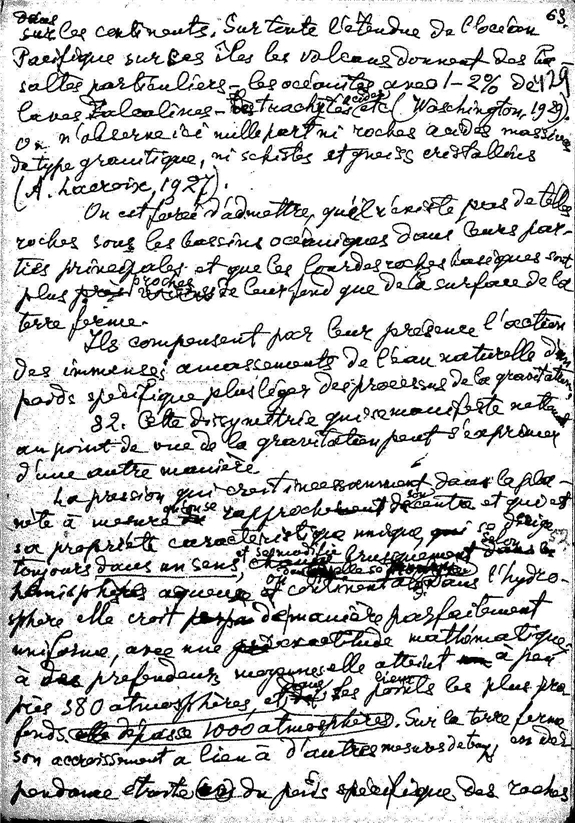 dans 63
sur les continents. Sur toute l'étendue de l'océan
Pacifique sur ses îles les volcans donnent des ba-
saltes particuliers – les océanites avec 1–2% de
laves alcalines – trachytes acides etc (Washington, 1929).
On n'observe ici nulle part ni roches acides massives
de type granitique, ni schistes et gneiss cristallins
(A. Lacroix, 1927).
On est forcé d'admettre, qu'il n'existe pas de telles
roches sous les bassins océaniques dans leurs par-
ties principales et que les lourdes roches basiques sont
plus proches de leur fond que de la surface de la
terre ferme.
Ils compensent par leur présence l'action
des immenses amassements de l'eau naturelle d'un
poids spécifique plus léger des processus de la gravitation
82. Cette dissymétrie qui se manifeste nettement
au point de vue de la gravitation peut s'exprimer
d'une autre manière
La pression qui croit incessamment dans la pla-
nète à mesure qu'on se rapproche de son centre et qui est
sa propriété caractéristique unique, se dirige
toujours dans un sens, et se modifie brusquement selon les
hémisphères aqueux et continental. Dans l'hydro-
sphère elle croit de manière parfaitement
uniforme, avec une exactitude mathématique,
à des profondeurs moyennes elle atteint à peu
près 380 atmosphères, et dans les lieux les plus pro-
fonds elle dépasse 1000 atmosphères. Sur la terre ferme
son accroissement a lieu à d'autres mesures de temps en dé-
pendance étroite du poids spécifique des roches